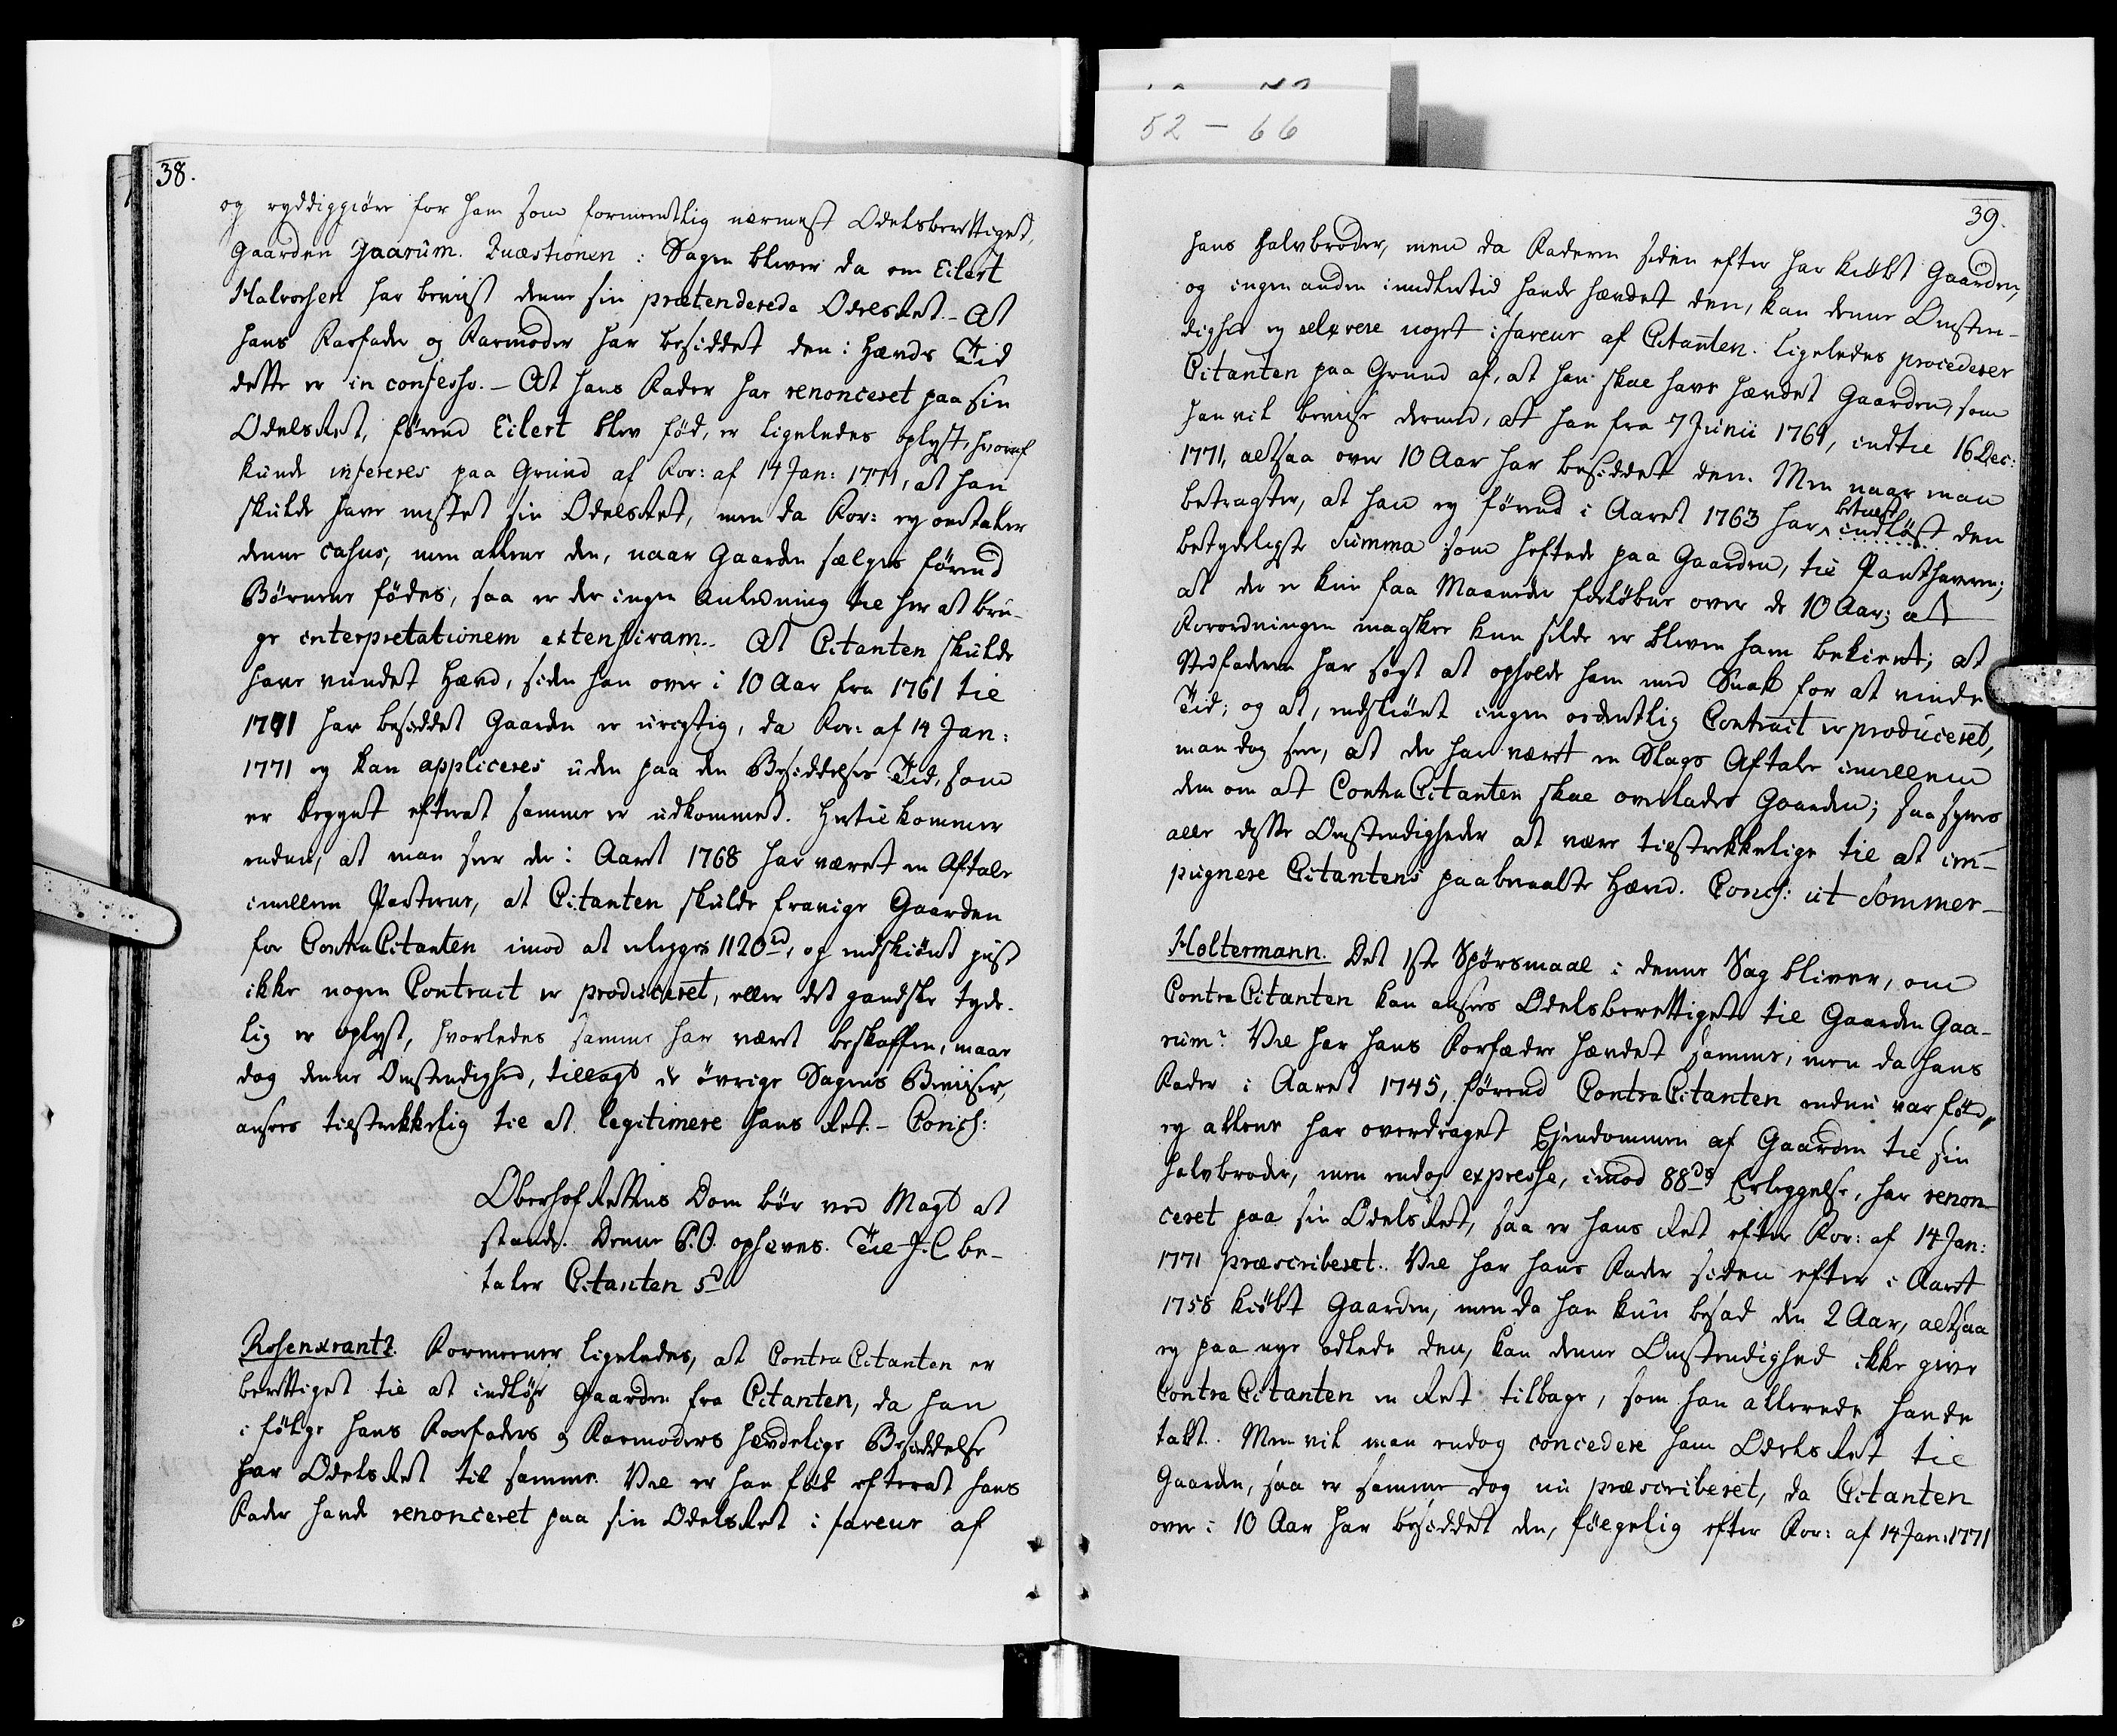 52 – 66
38.
og ryddiggiöre for ham som formentlig nærmest Odelsberettiget,
Gaarden Gaarum. Quæstionen i Sagen bliver da om Eilert
Halvorsen har beviist denne sin prætenderede OdelsRet. – At
hans Farfader og Farmoder har besiddet den i Hævds Tid
dette er in confesso. – At hans Fader har renonceret paa sin
OdelsRet, förend Eilert blev föd, er ligeledes oplyst, hvoraf
kunde infereres paa Grund af For: af 14 Jan: 1771, at han
skulde have mistet sin OdelsRet, men da For: ey omtaler
denne casus, men allene den, naar Gaarden sælges förend
Börnene födes, saa er der ingen Anledning til her at bru-
ge interpretationem extensivam. – At Citanten skulde
have vundet Hævd, siden han over i 10 Aar fra 1761 til
1771 har besiddet Gaarden er urigtig, da For: af 14 Jan:
1771 ey kan appliceres uden paa den Besiddelses Tid, som
er begynt efterat samme er udkommet. Hertil kommer
endnu, at man seer der i Aaret 1768 har været en Aftale
imellem Parterne, at Citanten skulde fravige Gaarden
for ContraCitanten imod at erlegges 1120 rd, og endskiönt just
ikke nogen Contract er produceret, eller det gandske tyde-
lig er oplyst, hvorledes samme har været beskaffen, maae
dog denne Omstendighed, tillagt de övrige Sagens Beviiser,
ansees tilstrekkelig til at legitimere hans Ret. – Concl:
OberhofRettens Dom bör ved Magt at
stande. Denne P.O. ophæves. Til J.C be-
taler Citanten 5 rd
Rosenkrantz. Formener ligeledes, at ContraCitanten er
berettiget til at indlöse Gaarden fra Citanten, da han
i fölge hans Farfaders og Farmoders hævdelige Besiddelse
har OdelsRet til samme. Vel er han föd efterat hans
Fader havde renonceret paa sin OdelsRet i faveur af
39.
hans Halvbroder, men da Faderen siden efter har kiöbt Gaarden,
og ingen anden imidlertid havde hævdet den, kan denne Omsten-
dighed ey relevere noget i faveur af Citanten. Ligeledes procederer
Citanten paa Grund af, at han skal have hævdet Gaarden, som
han vil beviise dermed, at han fra 7 Junii 1761, indtil 16 Dec:
1771, altsaa over 10 Aar har besiddet den. Men naar man
betragter, at han ey förend i Aaret 1763 har betalt indlöst den
betydeligste Summa som heftede paa Gaarden, til Panthaveren;
at der er kun faa Maaneder forlöbne over de 10 Aar; at
Forordningen maaskee kun silde er bleven ham bekient; at
Stedfaderen har sögt at opholde ham med Snak for at vinde
Tid; og at, endskiönt ingen ordentlig Contract er produceret,
man dog seer, at der har været en Slags Aftale imellem
dem om at ContraCitanten skal overlades Gaarden; saa synes
alle disse Omstendigheder at være tilstrekkelige til at im-
pugnere Citantens paaberaabte Hævd. Concl: ut Sommer –
Holtermann. Det 1ste Spörsmaal i denne Sag bliver, om
ContraCitanten kan ansees Odelsberettiget til Gaarden Gaa-
rum? Vel har hans Forfædre hævdet samme, men da hans
Fader i Aaret 1745, förend ContraCitanten endnu var föd,
ey allene har overdraget Ejendommen af Gaarden til sin
Halvbroder, men endog expresse, imod 88 rds Erleggelse, har renon-
ceret paa sin OdelsRet, saa er hans Ret efter For: af 14 Jan:
1771 præscriberet. Vel har hans Fader siden efter i Aaret
1758 kiöbt Gaarden, men da han kun besad den 2 Aar, altsaa
ey paa nye odlede den, kan denne Omstendighed ikke give
ContraCitanten en Ret tilbage, som han allerede havde
tabt. Men vil man endog concedere ham OdelsRet til
Gaarden, saa er samme dog nu præscriberet, da Citanten
over i 10 Aar har besiddet den, fölgelig efter For: af 14 Jan: 1771